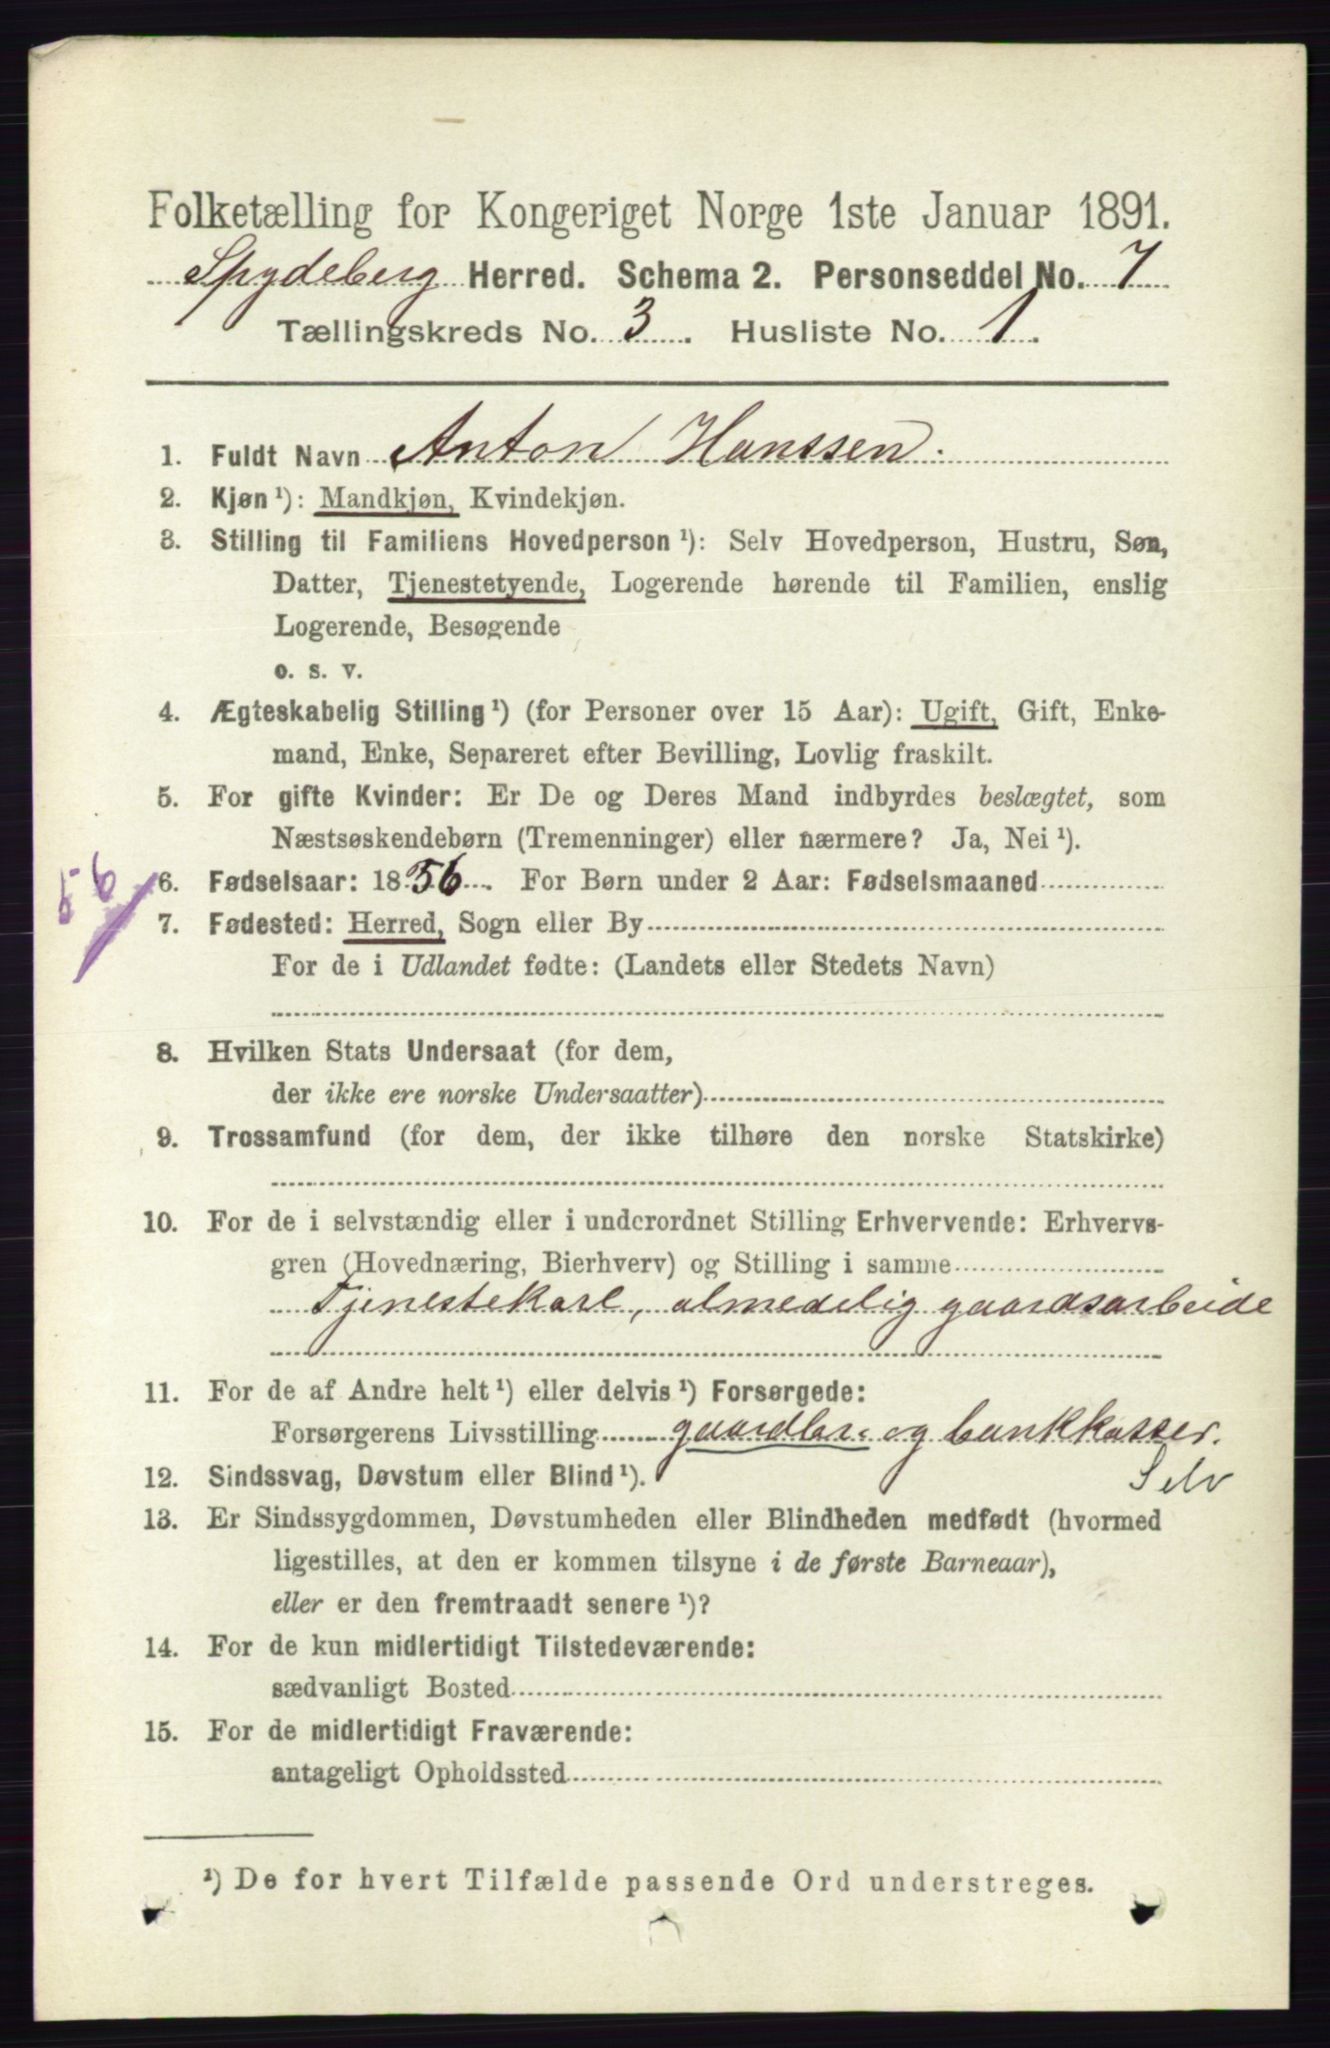 Folketælling for Kongeriget Norge 1ste Januar 1891.
Spydeberg Herred. Schema 2. Personseddel No. 7
Tællingskreds No. 3. Husliste No. 1.
1. Fuldt Navn Anton Hanssen.
2. Kjøn ¹): Mandkjøn, Kvindekjøn.
3. Stilling til Familiens Hovedperson ¹): Selv Hovedperson, Hustru, Søn,
Datter, Tjenestetyende, Logerende hørende til Familien, enslig
Logerende, Besøgende
o. s. v.
4. Ægteskabelig Stilling ¹) (for Personer over 15 Aar): Ugift, Gift, Enke-
mand, Enke, Separeret efter Bevilling, Lovlig fraskilt.
5. For gifte Kvinder: Er De og Deres Mand indbyrdes beslægtet, som
Næstsøskendebørn (Tremenninger) eller nærmere? Ja, Nei ¹).
56
6. Fødselsaar: 1856. For Børn under 2 Aar: Fødselsmaaned
7. Fødested: Herred, Sogn eller By
For de i Udlandet fødte: (Landets eller Stedets Navn)
8. Hvilken Stats Undersaat (for dem,
der ikke ere norske Undersaatter)
9. Trossamfund (for dem, der ikke tilhøre den norske Statskirke)
10. For de i selvstændig eller i underordnet Stilling Erhvervende: Erhvervs-
gren (Hovednæring, Bierhverv) og Stilling i samme
Tjenestekarl, almedelig gaardsarbeide
11. For de af Andre helt ¹) eller delvis ¹) Forsørgede:
Forsørgerens Livsstilling og bankkasser.
12. Sindssvag, Døvstum eller Blind ¹). Selv
13. Er Sindssygdommen, Døvstumheden eller Blindheden medfødt (hvormed
ligestilles, at den er kommen tilsyne i de første Barneaar),
eller er den fremtraadt senere ¹)?
14. For de kun midlertidigt Tilstedeværende:
sædvanligt Bosted
15. For de midlertidigt Fraværende:
antageligt Opholdssted
¹) De for hvert Tilfælde passende Ord understreges.